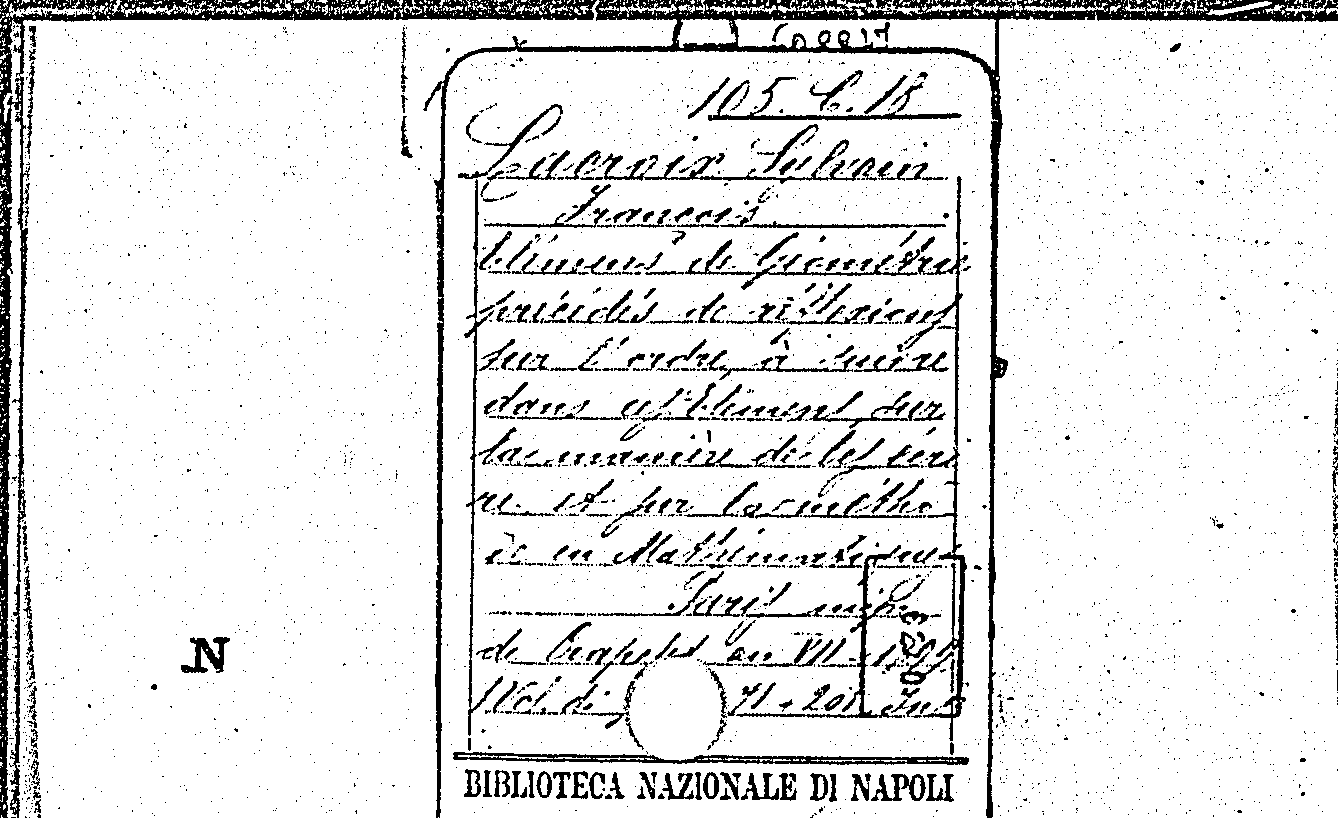 105. C. 18
Lacroix Sylvain
François.
Elémens de Géométrie
précédés de réflexions
sur l'ordre, à suivre
dans ces élémens, sur
la manière de les écri
re et sur la métho
de en Mathématiques
Paris
de Crapelet an VII -
1 Vol. di 71 - 201 In 8
N
BIBLIOTECA NAZIONALE DI NAPOLI